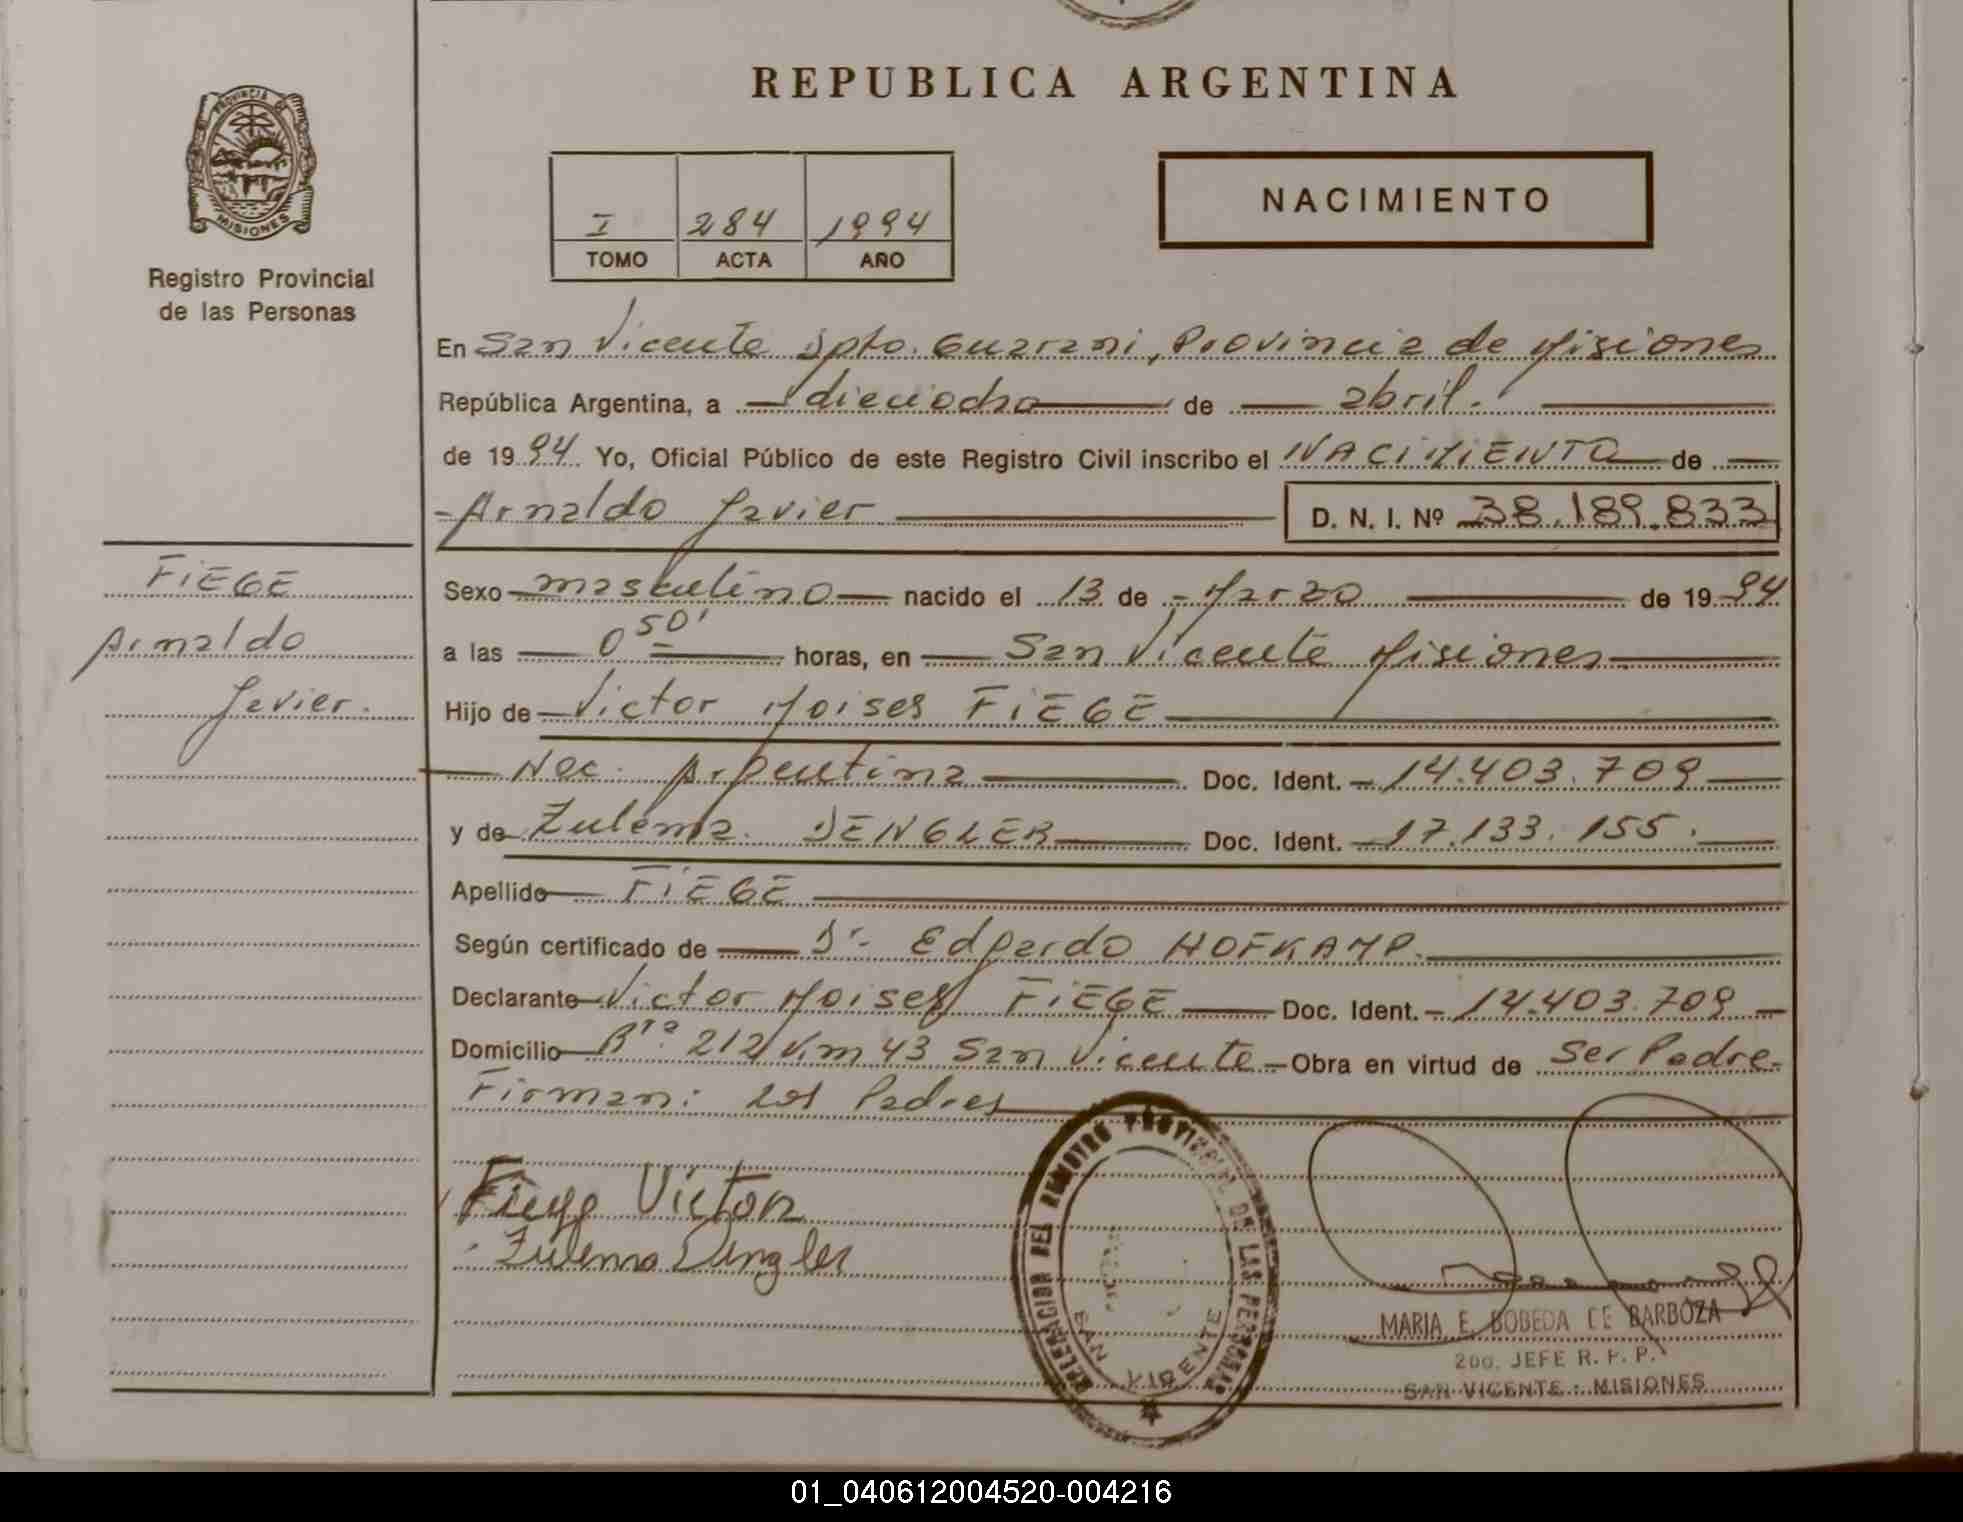 REPUBLICA ARGENTINA
PROVINCIA DE MISIONES
Registro Provincial
de las Personas
I 284 1994
TOMO ACTA AÑO
NACIMIENTO
En San Vicente Dpto. Guarani, Provincia de Misiones
República Argentina, a dieciocho de abril.
de 1994 Yo, Oficial Público de este Registro Civil inscribo el NACIMIENTO de
Arnaldo Javier D. N. I. Nº 38.189.833
FIEGE
Arnaldo
Javier.
Sexo masculino nacido el 13 de Marzo de 1994
a las 0 50' horas, en San Vicente Misiones
Hijo de Victor Moises FIEGE
Nac. Argentina Doc. Ident. 14.403.709
y de Zulema DENGLER Doc. Ident. 17.133.155.
Apellido FIEGE
Según certificado de Dr. Edgardo HOFKAMP.
Declarante Victor Moises FIEGE Doc. Ident. 14.403.709
Domicilio Rta. 212 Km 43 San Vicente Obra en virtud de Ser Padre
Firman: Los Padres
Fiege Victor
Zulema Dengler
DELEGACION DEL REGISTRO PROVINCIAL DE LAS PERSONAS
SAN VICENTE
MARIA E. BOBEDA DE BARBOZA
2do. JEFE R. P. P.
SAN VICENTE - MISIONES
01_040612004520-004216